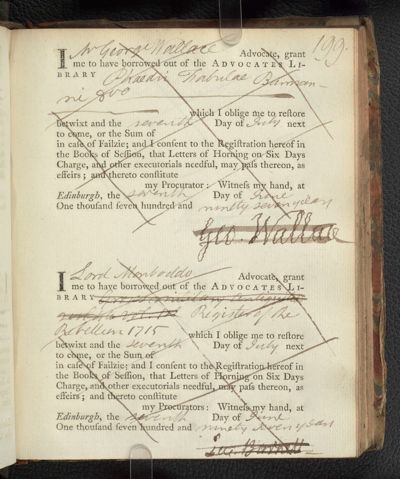 199.
I Mr George Wallace Advocate, grant
me to have borrowed out of the ADVOCATES LI-
BRARY Phaedri Fabulae Burman-
ni 8vo
which I oblige me to restore
betwixt and the seventh Day of July next
to come, or the Sum of
in case of Failzie; and I consent to the Registration hereof in
the Books of Session, that Letters of Horning on Six Days
Charge, and other executorials needful, may pass thereon, as
effeirs; and thereto constitute
my Procurator: Witness my hand, at
Edinburgh, the seventh Day of June
One thousand seven hundred and ninety seven years
Geo. Wallace
I Lord Monboddo Advocate, grant
me to have borrowed out of the ADVOCATES LI-
BRARY military antiquities
Register of the
Rebellion 1715 which I oblige me to restore
betwixt and the seventh Day of July next
to come, or the Sum of
in case of Failzie; and I consent to the Registration hereof in
the Books of Session, that Letters of Horning on Six Days
Charge, and other executorials needful, may pass thereon, as
effeirs; and thereto constitute
my Procurators: Witness my hand, at
Edinburgh, the seventh Day of June
One thousand seven hundred and ninety seven years